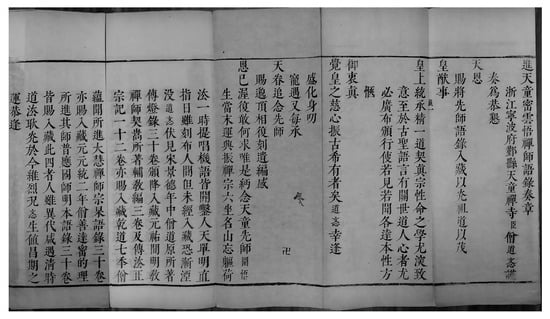 進天童密雲悟禪師語錄奏章
浙江寧波府鄞縣天童禪寺臣僧道忞謹
奏為恭懇
天恩
賜將先師語錄入藏以光祖道以茂
皇猷事
皇上統承精一道契真宗性命之學尤深致
意至於古聖語言有關世道人心者尤
必廣布頒行使若見若聞各達本性方
愜
御衷真
覺皇之慈心振古希有者矣道忞幸逢
盛化身叨
寵遇又每承
天眷追念先師
賜遺頂相復刻遺編感
恩已渥復敢何求唯是緬念天童先師圓悟
生當末運興振禪宗六坐名山忘軀荷
法一時提唱機語皆開鑿人天單明直
指目雖刻布人間但未經入藏恐漸湮
沒道忞伏見宋景德年中僧道原所著
傳燈錄三十卷頒降入藏元祐間明教
禪師契嵩所著輔教編三卷及傳法正
宗記一十二卷亦賜入藏乾道七季僧
蘊聞所進大慧禪師宗杲語錄三十卷
亦賜入藏元元統二年僧善達密的理
所進其師普應國師明本語錄三十卷
皆賜入藏此四者人雖異代咸遇清時
道法耿光於今雖烈況忞生值昌期之
運恭逢